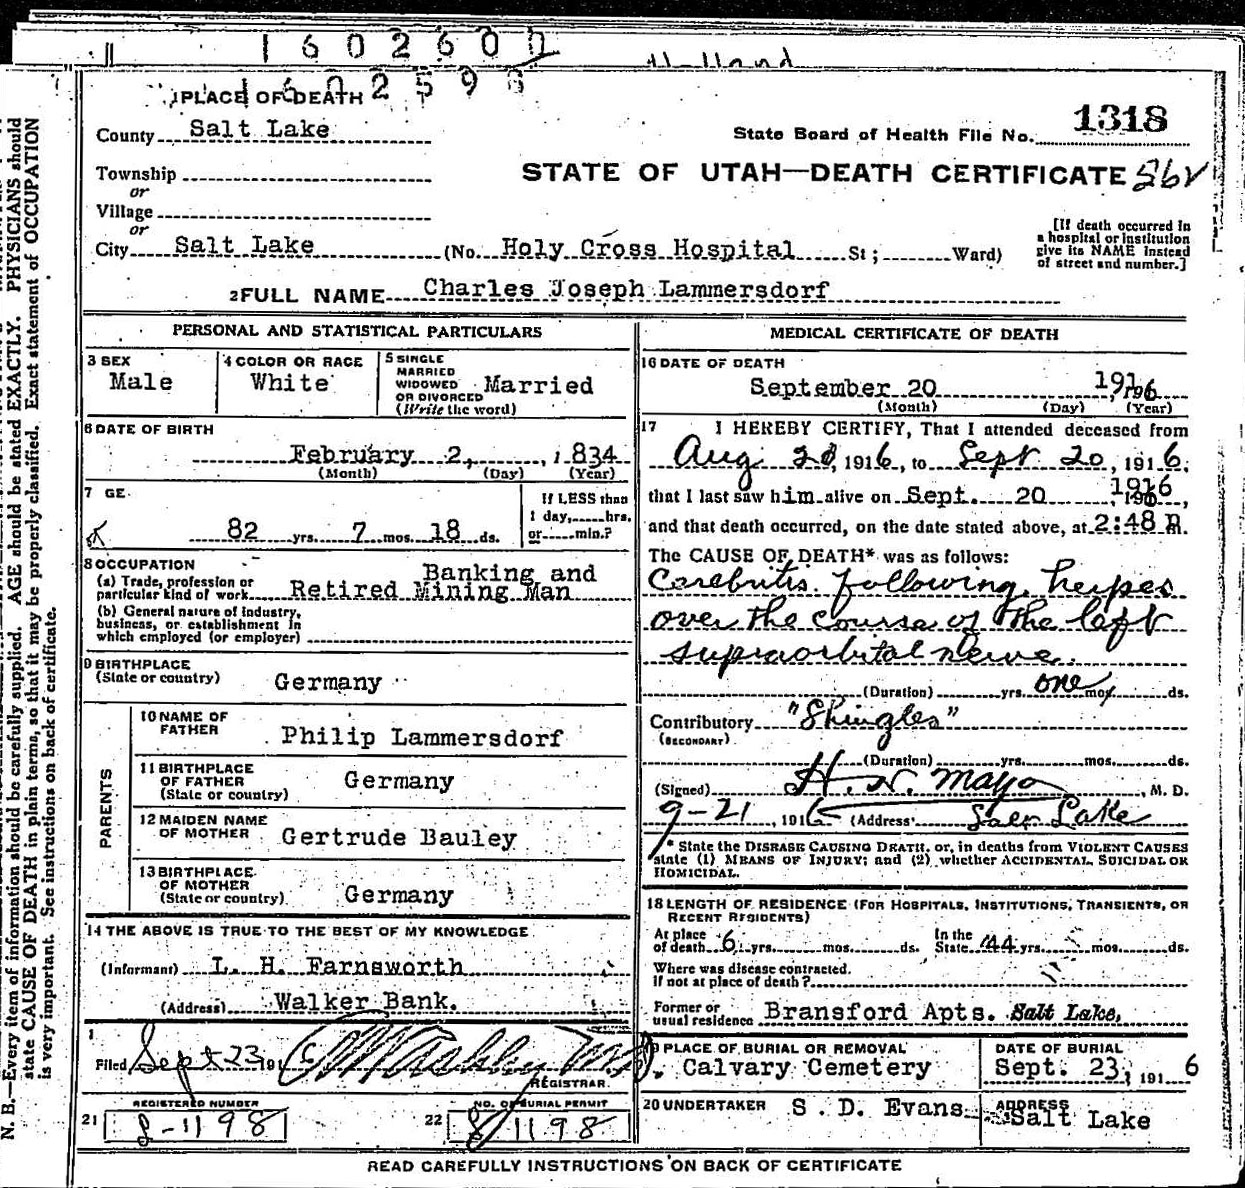 1602600
1602598
1 PLACE OF DEATH
County Salt Lake
State Board of Health File No. 1318
Township
or
STATE OF UTAH—DEATH CERTIFICATE
Village
or
City Salt Lake (No. Holy Cross Hospital St; Ward)
[If death occurred in
a hospital or institution
give its NAME instead
of street and number.]
2 FULL NAME Charles Joseph Lammersdorf
PERSONAL AND STATISTICAL PARTICULARS
3 SEX
Male
4 COLOR OR RACE
White
5 SINGLE
MARRIED
WIDOWED
OR DIVORCED
(Write the word)
Married
6 DATE OF BIRTH
February 2, 1834
(Month) (Day) (Year)
7 GE
82 yrs. 7 mos. 18 ds.
If LESS than
1 day, hrs.
or min.?
8 OCCUPATION
(a) Trade, profession or
particular kind of work
Banking and
Retired Mining Man
(b) General nature of industry,
business, or establishment in
which employed (or employer)
9 BIRTHPLACE
(State or country)
Germany
PARENTS
10 NAME OF
FATHER
Philip Lammersdorf
11 BIRTHPLACE
OF FATHER
(State or country)
Germany
12 MAIDEN NAME
OF MOTHER
Gertrude Bauley
13 BIRTHPLACE
OF MOTHER
(State or country)
Germany
14 THE ABOVE IS TRUE TO THE BEST OF MY KNOWLEDGE
(Informant) L. H. Farnsworth
(Address) Walker Bank.
Filed Sept 23 191
REGISTRAR
REGISTERED NUMBER
21 8-1198
NO. OF BURIAL PERMIT
22 8 1198
MEDICAL CERTIFICATE OF DEATH
16 DATE OF DEATH
September 20 1916
(Month) (Day) (Year)
17 I HEREBY CERTIFY, That I attended deceased from
Aug , 1916, to Sept 20, 1916,
that I last saw him alive on Sept. 20 1916,
and that death occurred, on the date stated above, at 2:48 P.M.
The CAUSE OF DEATH* was as follows:
Cerebritis following herpes
over the course of the left
supraorbital nerve.
(Duration) yrs. one mos ds.
Contributory "Shingles"
(SECONDARY)
(Duration) yrs. mos. ds.
(Signed) H. N. Mayo, M. D.
9-21, 1916 (Address Salt Lake
* State the DISEASE CAUSING DEATH, or, in deaths from VIOLENT CAUSES
state (1) MEANS OF INJURY; and (2) whether ACCIDENTAL, SUICIDAL OR
HOMICIDAL.
18 LENGTH OF RESIDENCE (FOR HOSPITALS, INSTITUTIONS, TRANSIENTS, OR
RECENT RESIDENTS)
At place
of death 6 yrs. mos. ds.
In the
State 44 yrs. mos. ds.
Where was disease contracted.
if not at place of death?
Former or
usual residence Bransford Apts. Salt Lake,
19 PLACE OF BURIAL OR REMOVAL
Calvary Cemetery
DATE OF BURIAL
Sept. 23, 191 6
20 UNDERTAKER S. D. Evans
ADDRESS
Salt Lake
READ CAREFULLY INSTRUCTIONS ON BACK OF CERTIFICATE
N. B.—Every item of information should be carefully supplied. AGE should be stated EXACTLY. PHYSICIANS should
state CAUSE OF DEATH in plain terms, so that it may be properly classified. Exact statement of OCCUPATION
is very important. See instructions on back of certificate.